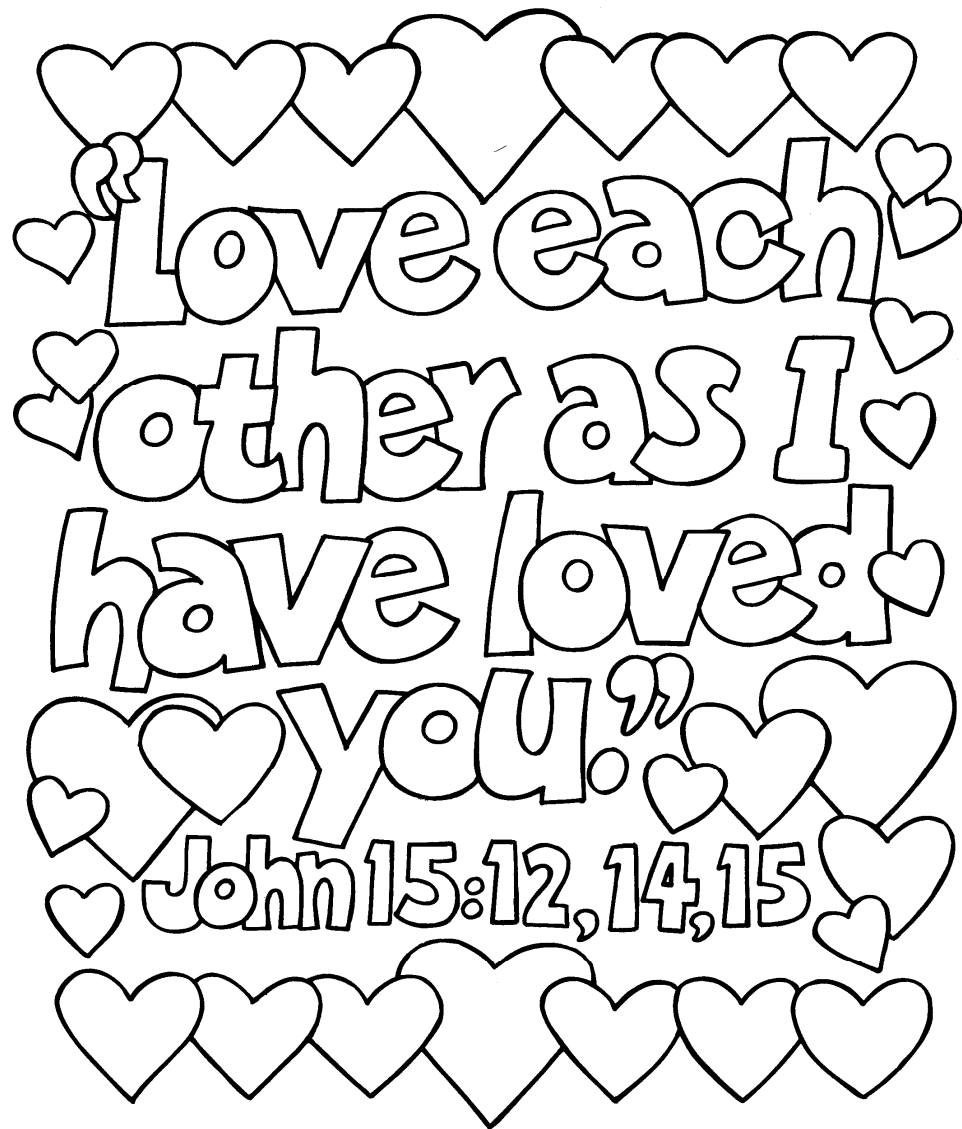 “Love each
other as I
have loved
you.”
John 15:12,14,15